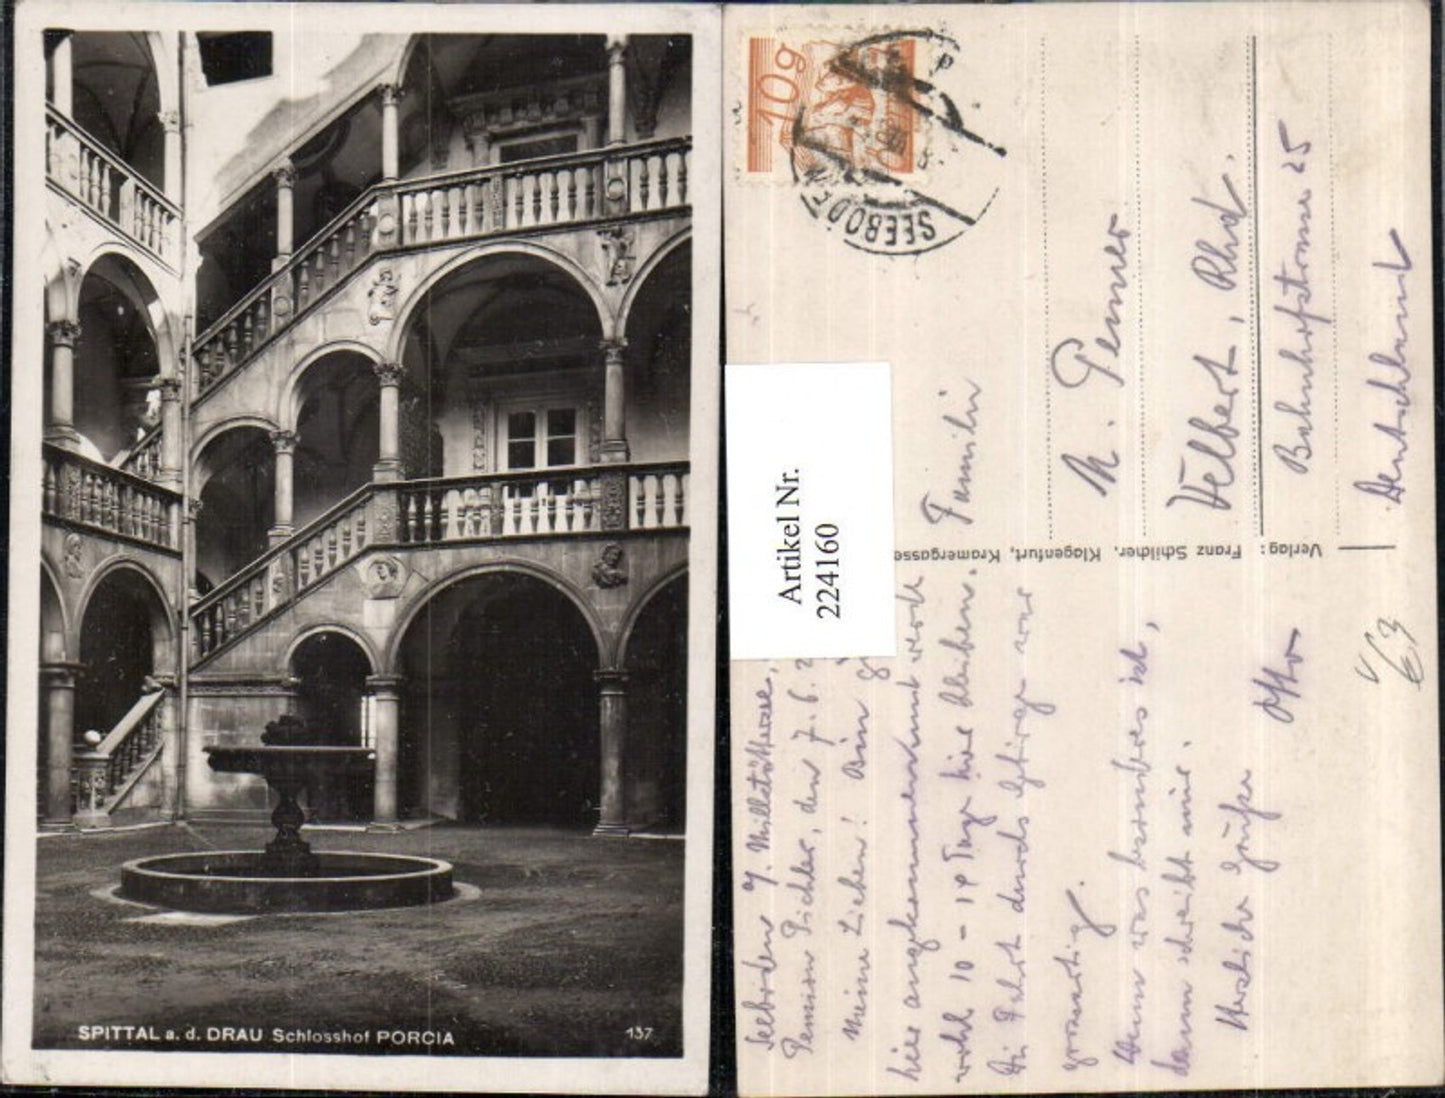 SPITTAL a. d. DRAU Schlosshof PORCIA
137
10g
SEEBODEN
Artikel Nr.
224160
Verlag: Franz Schilcher, Klagenfurt, Kramergasse
Familie
Velbert, Rhld.
Bahnhofstrasse 25
Deutschland
Seeboden
Pension Pichler, den 7.6.
Meine Lieben! Bin
hier angekommen und werde
wohl 10 - 14 Tage hier bleiben.
Die Fahrt durchs Gebirge war
grossartig.
Wenn was besonderes ist,
dann schreibt mir.
Herzliche Grüsse
Otto